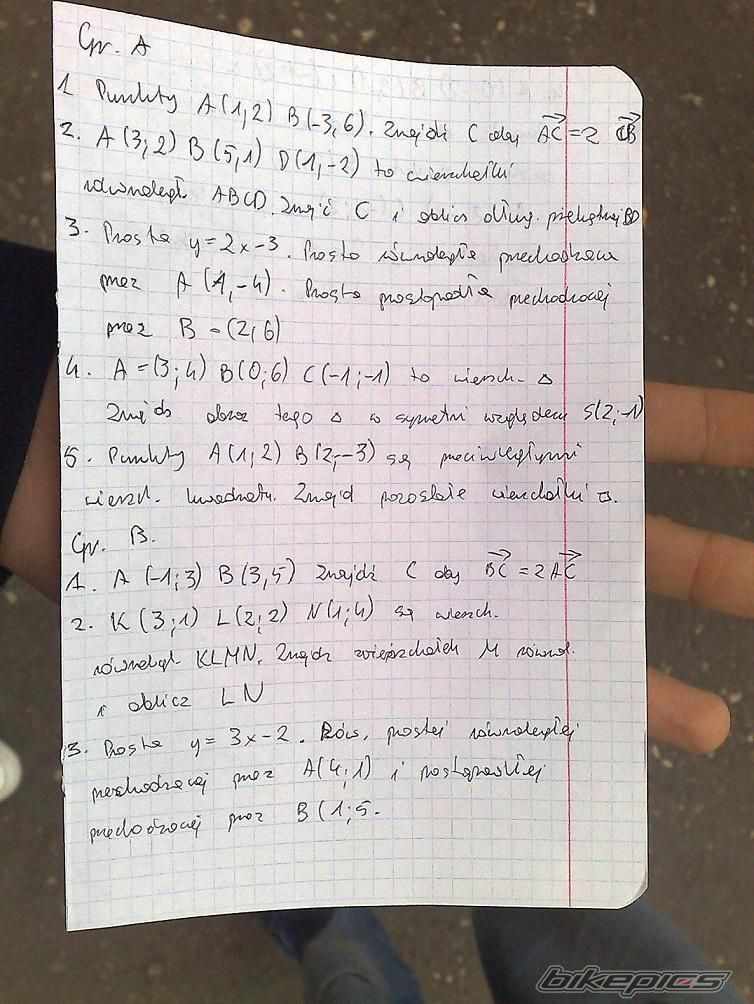 Gr. A
1. Punkty A(1,2) B(-3,6). Znajdź C aby AC = 2 CB
2. A(3;2) B(5,1) D(1,-2) to wierzchołki
równoległ. ABCD. Znajć C i oblicz dług. przekątnej BD
3. Prosta y=2x-3. Prosta równoległa przechodzaca
przez A(1,-4). Prosta prostopadła przechodzącej
przez B = (2,6)
4. A=(3;4) B(0;6) C(-1;-1) to wierzch. △
Znajdz obraz tego △ w symetrii względem S(2;-1)
5. Punkty A(1,2) B(2,-3) są przeciwległymi
wierzch. kwadratu. Znajd pozostałe wierzchołki □.
Gr. B.
1. A(-1;3) B(3,5) Znajdź C aby BC = 2AC
2. K(3;1) L(2;2) N(1;4) są wierzch.
równoległ. KLMN. Znajdz wierzchołek M równol.
i oblicz LN
3. Prosta y=3x-2. Rów. prostej równoległej
przechodzącej przez A(4;1) i prostopadłej
przechodzącej przez B(1;5.
bikepics